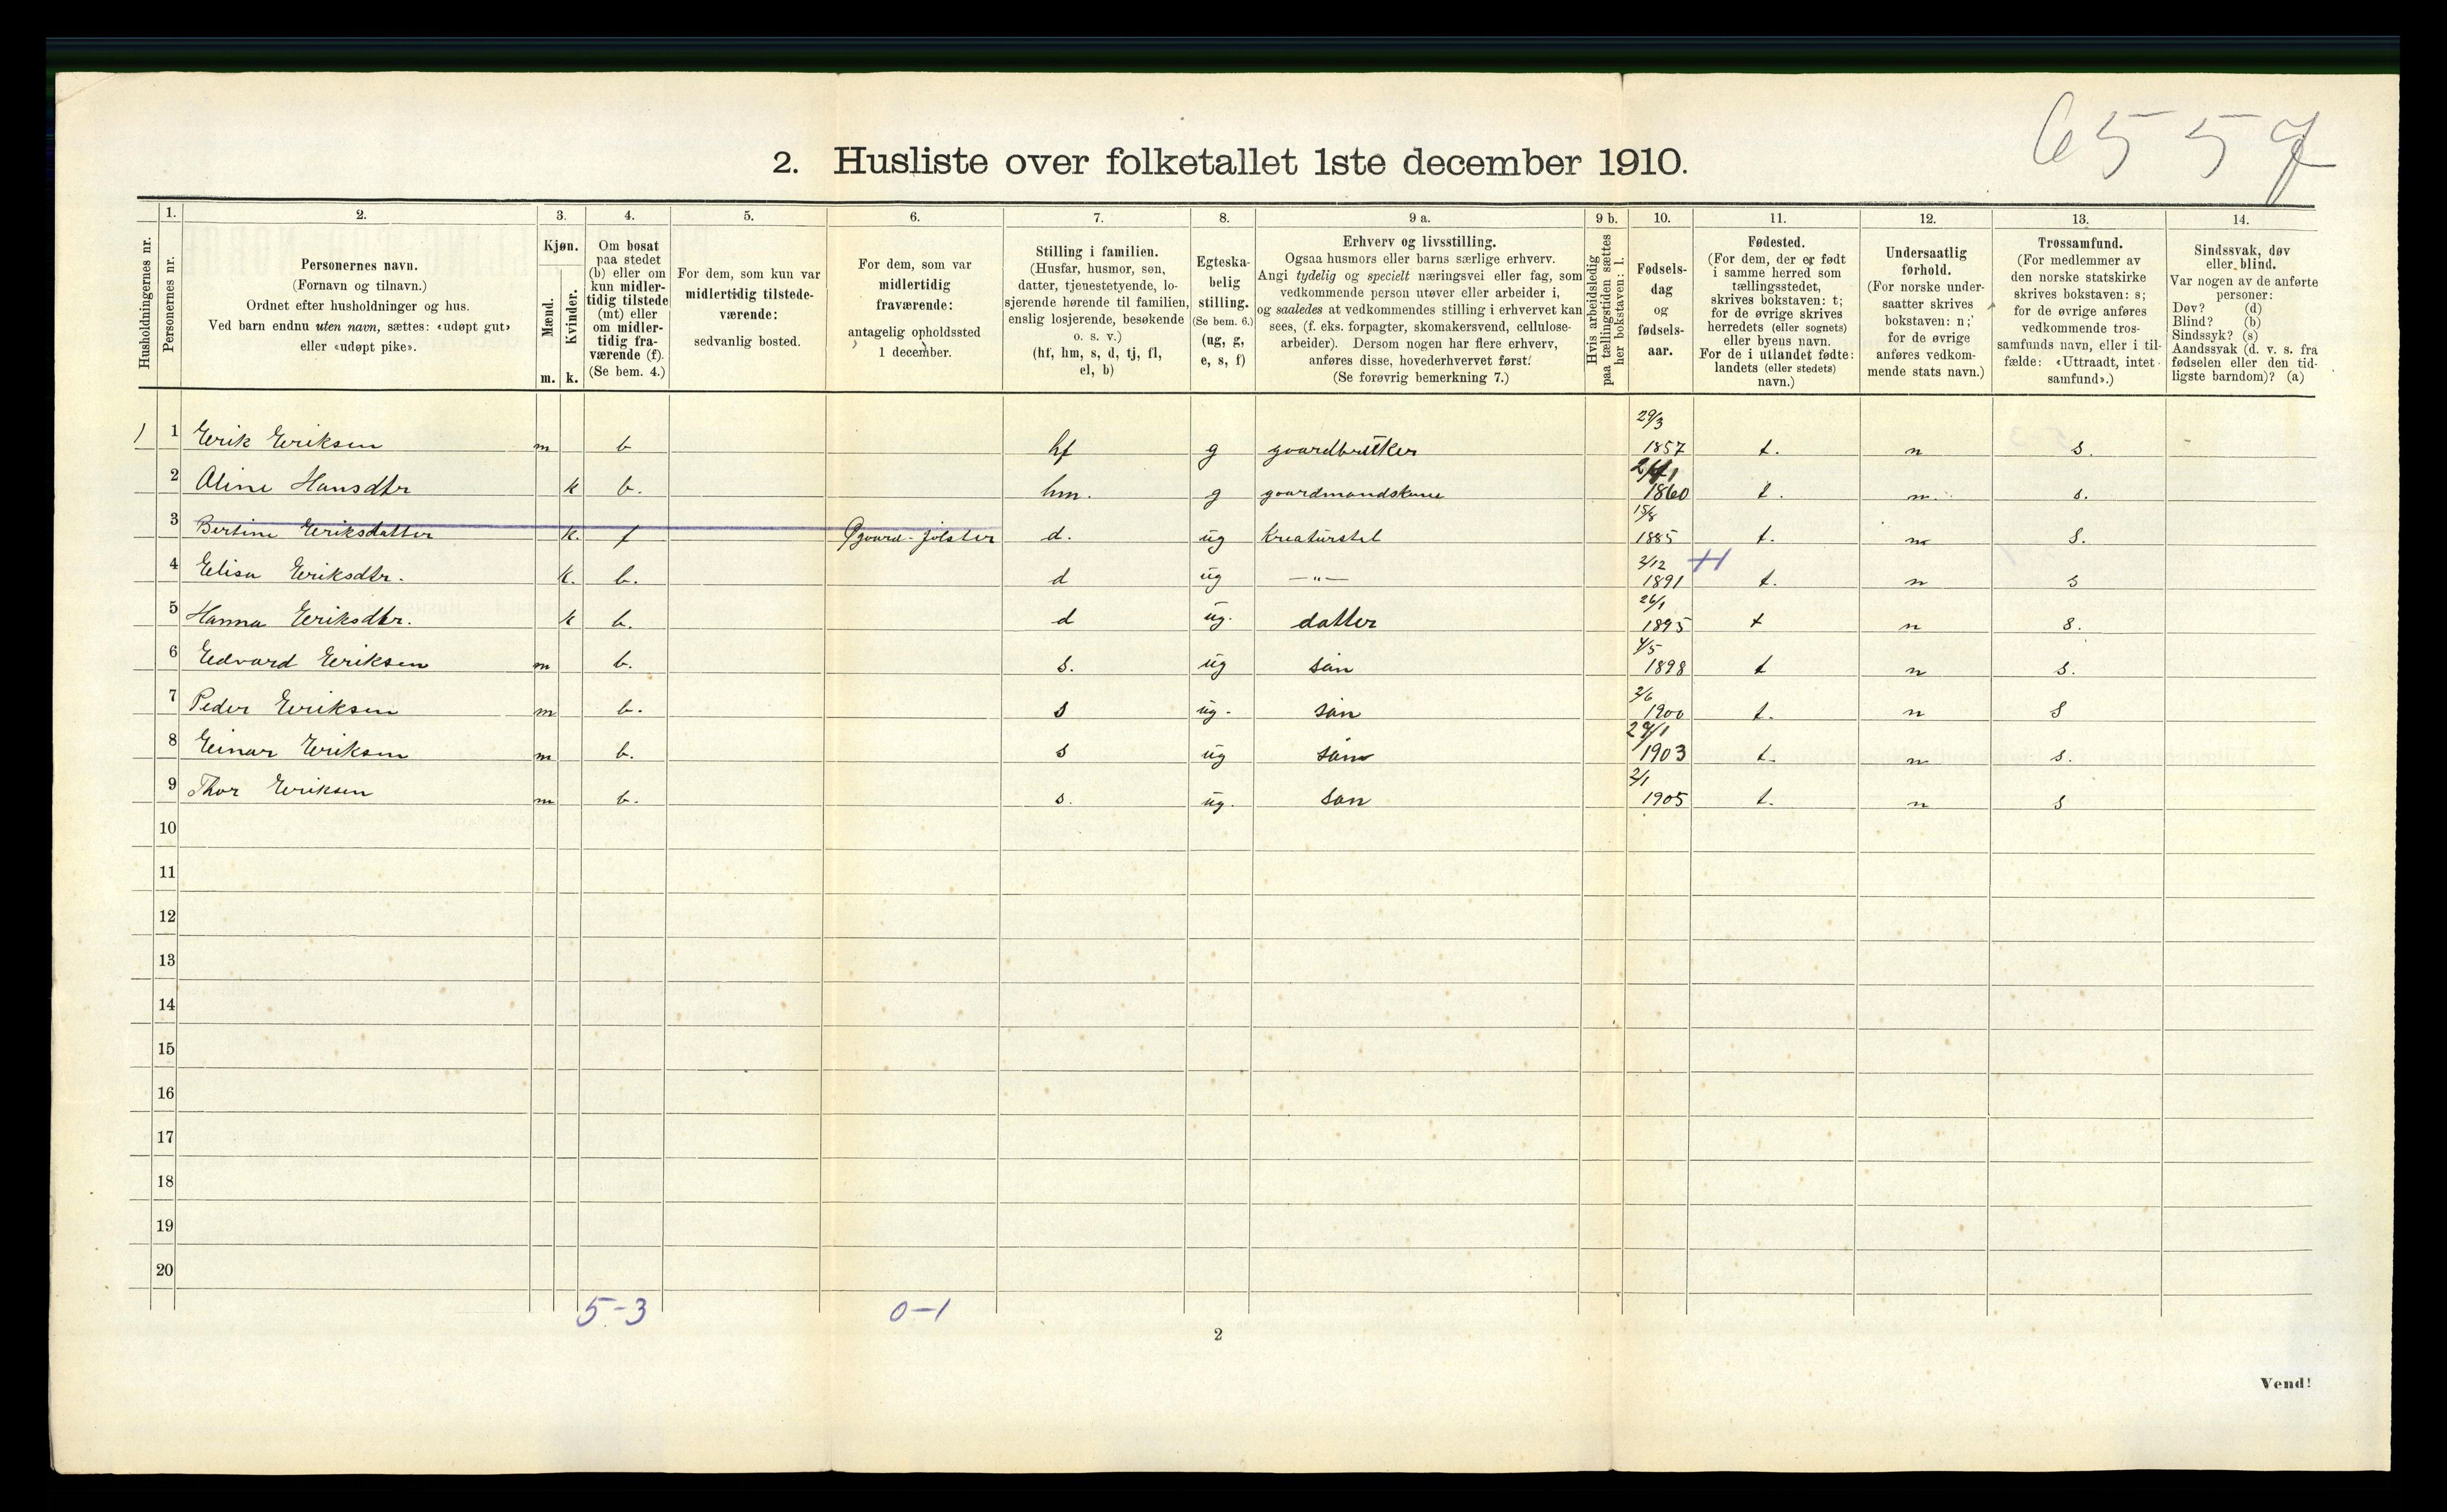 6557
2. Husliste over folketallet 1ste december 1910.
Husholdningernes nr.
1.
Personernes nr.
2.
Personernes navn.
(Fornavn og tilnavn.)
Ordnet efter husholdninger og hus.
Ved barn endnu uten navn, sættes: «udøpt gut»
eller «udøpt pike».
3.
Kjøn.
Mænd.
Kvinder.
m. k.
4.
Om bosat
paa stedet
(b) eller om
kun midler-
tidig tilstede
(mt) eller
om midler-
tidig fra-
værende (f).
(Se bem. 4.)
5.
For dem, som kun var
midlertidig tilstede-
værende:
sedvanlig bosted.
6.
For dem, som var
midlertidig
fraværende:
antagelig opholdssted
1 december.
7.
Stilling i familien.
(Husfar, husmor, søn,
datter, tjenestetyende, lo-
sjerende hørende til familien,
enslig losjerende, besøkende
o. s. v.)
(hf, hm, s, d, tj, fl,
el, b)
8.
Egteska-
belig
stilling.
(Se bem. 6.)
(ug, g,
e, s, f)
9 a.
Erhverv og livsstilling.
Ogsaa husmors eller barns særlige erhverv.
Angi tydelig og specielt næringsvei eller fag, som
vedkommende person utøver eller arbeider i,
og saaledes at vedkommendes stilling i erhvervet kan
sees, (f. eks. forpagter, skomakersvend, cellulose-
arbeider). Dersom nogen har flere erhverv,
anføres disse, hovederhvervet først.
(Se forøvrig bemerkning 7.)
9 b.
Hvis arbeidsledig
paa tællingstiden sættes
her bokstaven: l.
10.
Fødsels-
dag
og
fødsels-
aar.
11.
Fødested.
(For dem, der er født
i samme herred som
tællingsstedet,
skrives bokstaven: t;
for de øvrige skrives
herredets (eller sognets)
eller byens navn.
For de i utlandet fødte:
landets (eller stedets)
navn.)
12.
Undersaatlig
forhold.
(For norske under-
saatter skrives
bokstaven: n;
for de øvrige
anføres vedkom-
mende stats navn.)
13.
Trossamfund.
(For medlemmer av
den norske statskirke
skrives bokstaven: s;
for de øvrige anføres
vedkommende tros-
samfunds navn, eller i til-
fælde: «Uttraadt, intet
samfund».)
14.
Sindssvak, døv
eller blind.
Var nogen av de anførte
personer:
Døv? (d)
Blind? (b)
Sindssyk? (s)
Aandssvak (d. v. s. fra
fødselen eller den tid-
ligste barndom)? (a)
1 1 Erik Eriksen m b hf g gaardbruker 29/3 1857 t. n s.
2 Oline Hansdtr k b. hm. g gaardmandskone 1860 t. n. s.
3 Bertine Eriksdatter k. f Øgaard-Jølster d. ug Kreaturstel 15/8 1885 t. n s.
4 Elisa Eriksdtr. k. b. d ug —"— 2/12 1891 t. n s
5 Hanna Eriksdtr. k b. d ug. datter 26/1 1895 t n s.
6 Edvard Eriksen m b. s. ug søn 4/5 1898 t n s.
7 Peder Eriksen m b. s ug. søn 3/6 1900 t. n s
8 Einar Eriksen m b. s ug søn 29/1 1903 t. n s.
9 Thor Eriksen m b. s. ug. søn 2/1 1905 t. n s
10
11
12
13
14
15
16
17
18
19
20
5-3 0-1
2
Vend!